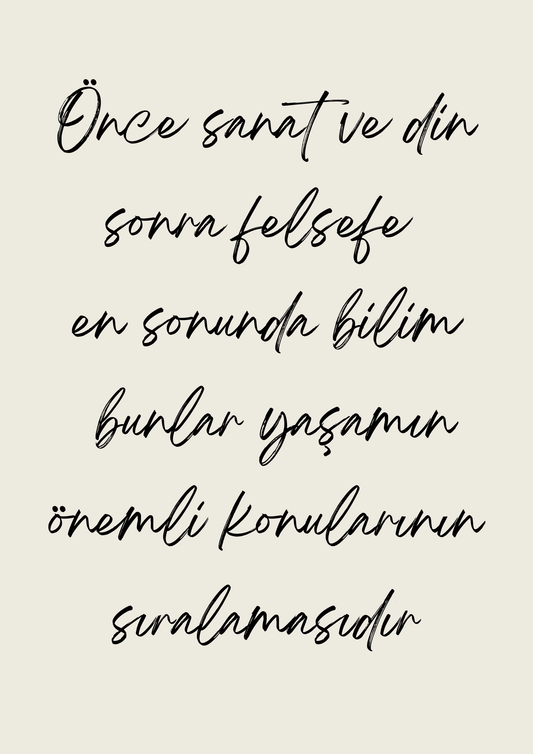 Önce sanat ve din
sonra felsefe
en sonunda bilim
bunlar yaşamın
önemli konularının
sıralamasıdır